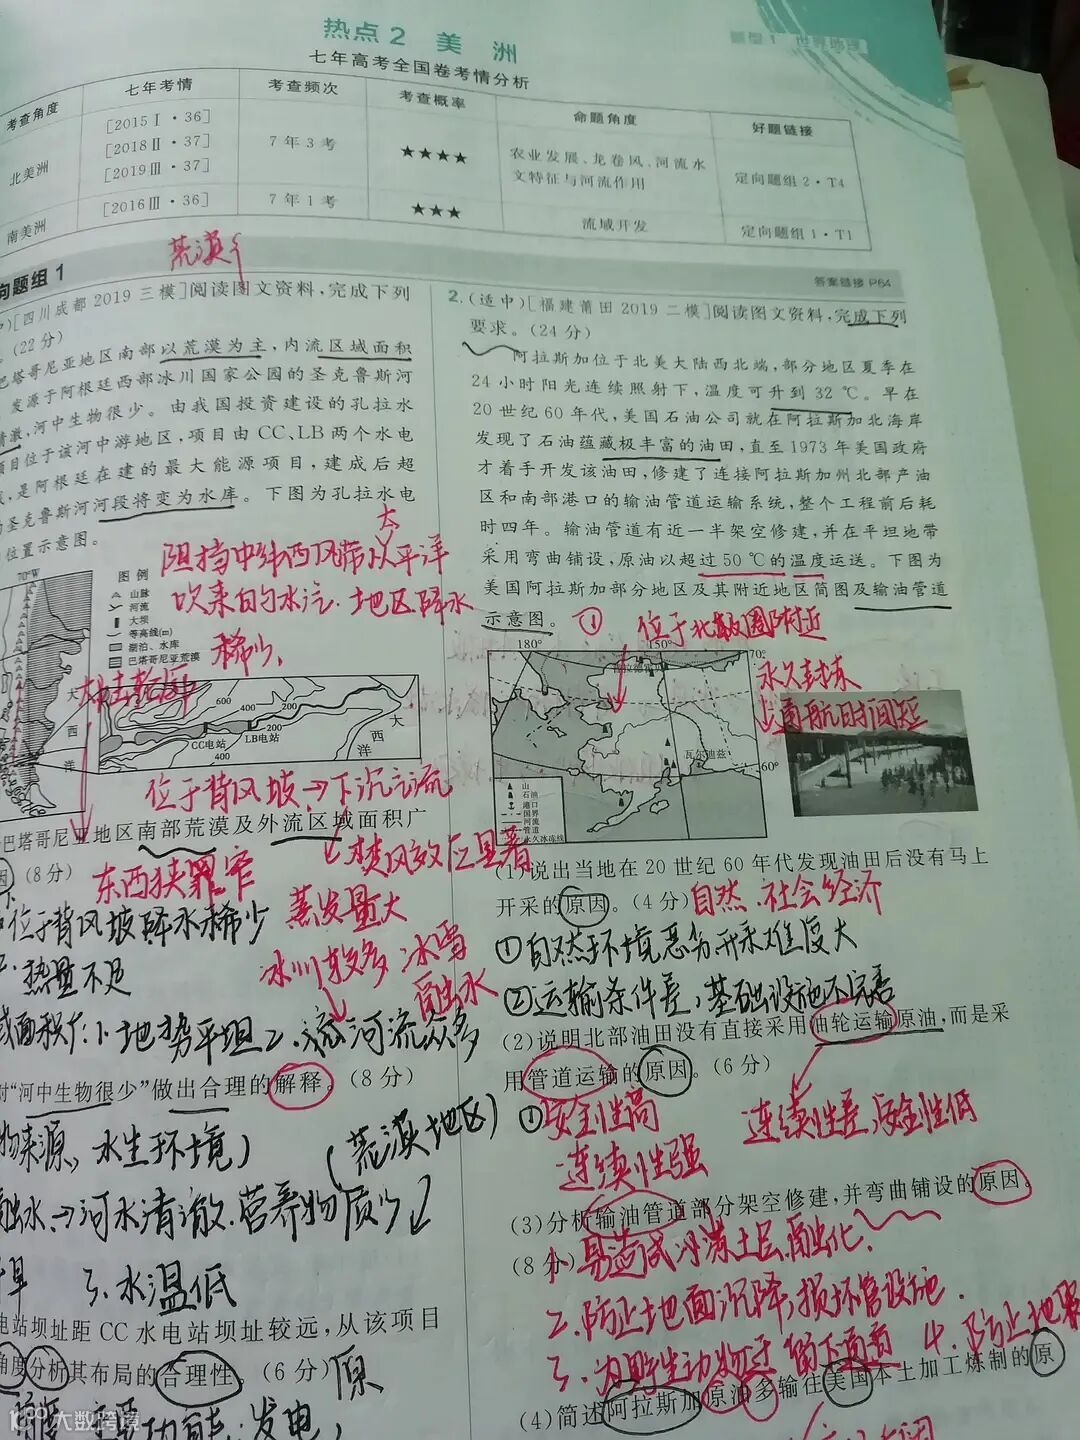 热点2 美洲
题型1 世界地理
七年高考全国卷考情分析
考查角度 七年考情 考查频次 考查概率 命题角度 好题链接
北美洲 [2015Ⅰ·36] [2018Ⅱ·37] [2019Ⅲ·37] 7年3考 ★★★★ 农业发展、龙卷风、河流水文特征与河流作用 定向题组2·T4
南美洲 [2016Ⅲ·36] 7年1考 ★★★ 流域开发 定向题组1·T1
荒漠
向题组1
答案链接 P64
)[四川成都2019三模]阅读图文资料,完成下列
。(22分)
巴塔哥尼亚地区南部以荒漠为主,内流区域面积
发源于阿根廷西部冰川国家公园的圣克鲁斯河
清澈,河中生物很少。由我国投资建设的孔拉水
项目位于该河中游地区,项目由CC、LB两个水电
,是阿根廷在建的最大能源项目,建成后超
的圣克鲁斯河河段将变为水库。下图为孔拉水电
位置示意图。
太
阻挡中纬西风带从平洋
吹来的水汽.地区降水
稀少,
70°W
图例
山脉
河流
大坝
等高线(m)
湖泊、水库
巴塔哥尼亚荒漠
大西洋
600
400
200
CC电站
LB电站
200
400
大西洋
位于背风坡→下沉气流
↓焚风效应显著
巴塔哥尼亚地区南部荒漠及外流区域面积广
因(8分)
东西狭窄
蒸发量大
位于背风坡降水稀少
热量不足
冰川较多 冰雪
融水
域面积广:1.地势平坦2.河流众多
对“河中生物很少”做出合理的解释。(8分)
物来源,水生环境)
(荒漠地区)
融水→河水清澈.营养物质少
3.水温低
电站坝址距CC水电站坝址较远,从该项目
角度分析其布局的合理性。(6分)
原
发电,
2.(适中)[福建莆田2019二模]阅读图文资料,完成下列
要求。(24分)
阿拉斯加位于北美大陆西北端,部分地区夏季在
24小时阳光连续照射下,温度可升到32 ℃。早在
20世纪60年代,美国石油公司就在阿拉斯加北海岸
发现了石油蕴藏极丰富的油田,直至1973年美国政府
才着手开发该油田,修建了连接阿拉斯加州北部产油
区和南部港口的输油管道运输系统,整个工程前后耗
时四年。输油管道有近一半架空修建,并在平坦地带
采用弯曲铺设,原油以超过50 ℃的温度运送。下图为
美国阿拉斯加部分地区及其附近地区简图及输油管道
示意图。
① 位于北极圈附近
永久封冻
通航时间短
180°
150°
70°
60°
瓦尔迪兹
山
石油
港口
国界
河流
管道
永久冰冻线
(1)说出当地在20世纪60年代发现油田后没有马上
开采的原因。(4分)自然.社会经济
①自然环境恶劣开采难度大
②运输条件差,基础设施不完善
(2)说明北部油田没有直接采用油轮运输原油,而是采
用管道运输的原因。(6分)
①安全性高
连续性强
连续性差,安全性低
(3)分析输油管道部分架空修建,并弯曲铺设的原因。
(8分)1.易造成冻土层融化.
2.防止地面沉降,损坏管设施.
3.为野生动物迁
4.防止地震
(4)简述阿拉斯加原油多输往美国本土加工炼制的原
大数跨境